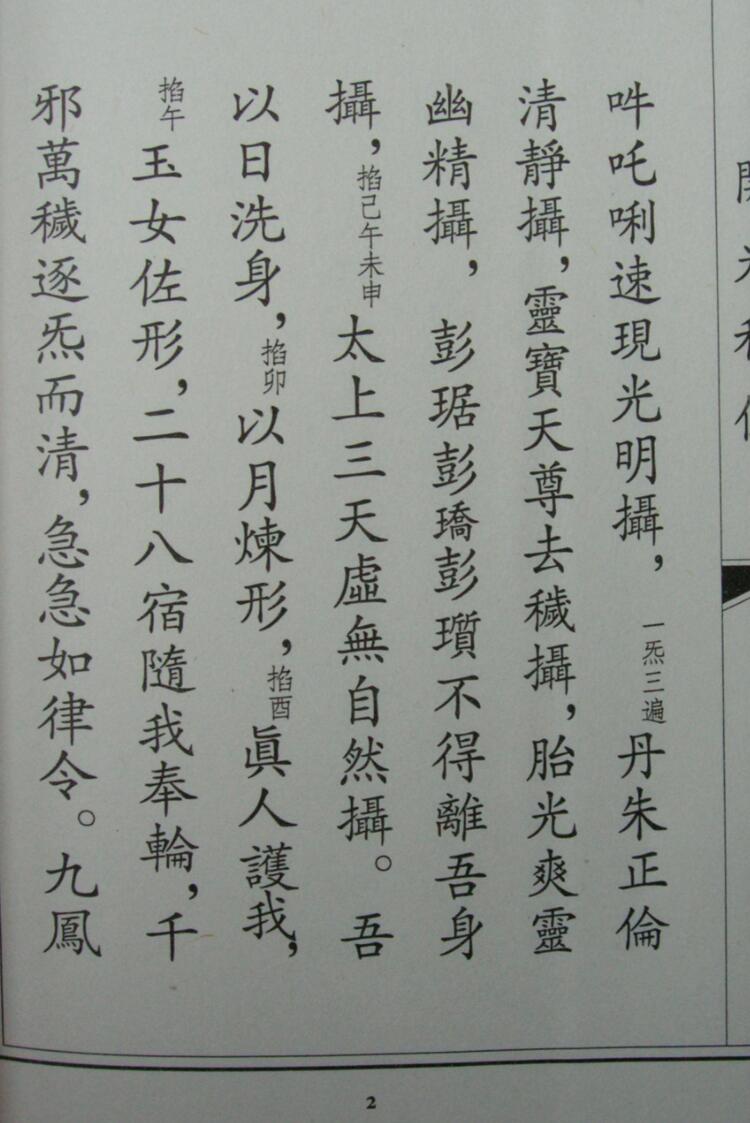 吽吒唎速現光明攝，一炁三遍丹朱正倫
清靜攝，靈寶天尊去穢攝，胎光爽靈
幽精攝，彭琚彭瓆彭矯不得離吾身
攝，掐己午未申太上三天虛無自然攝。吾
以日洗身，掐卯以月煉形，掐酉眞人護我，
掐午玉女佐形，二十八宿隨我奉輪，千
邪萬穢逐炁而清，急急如律令。九鳳
2